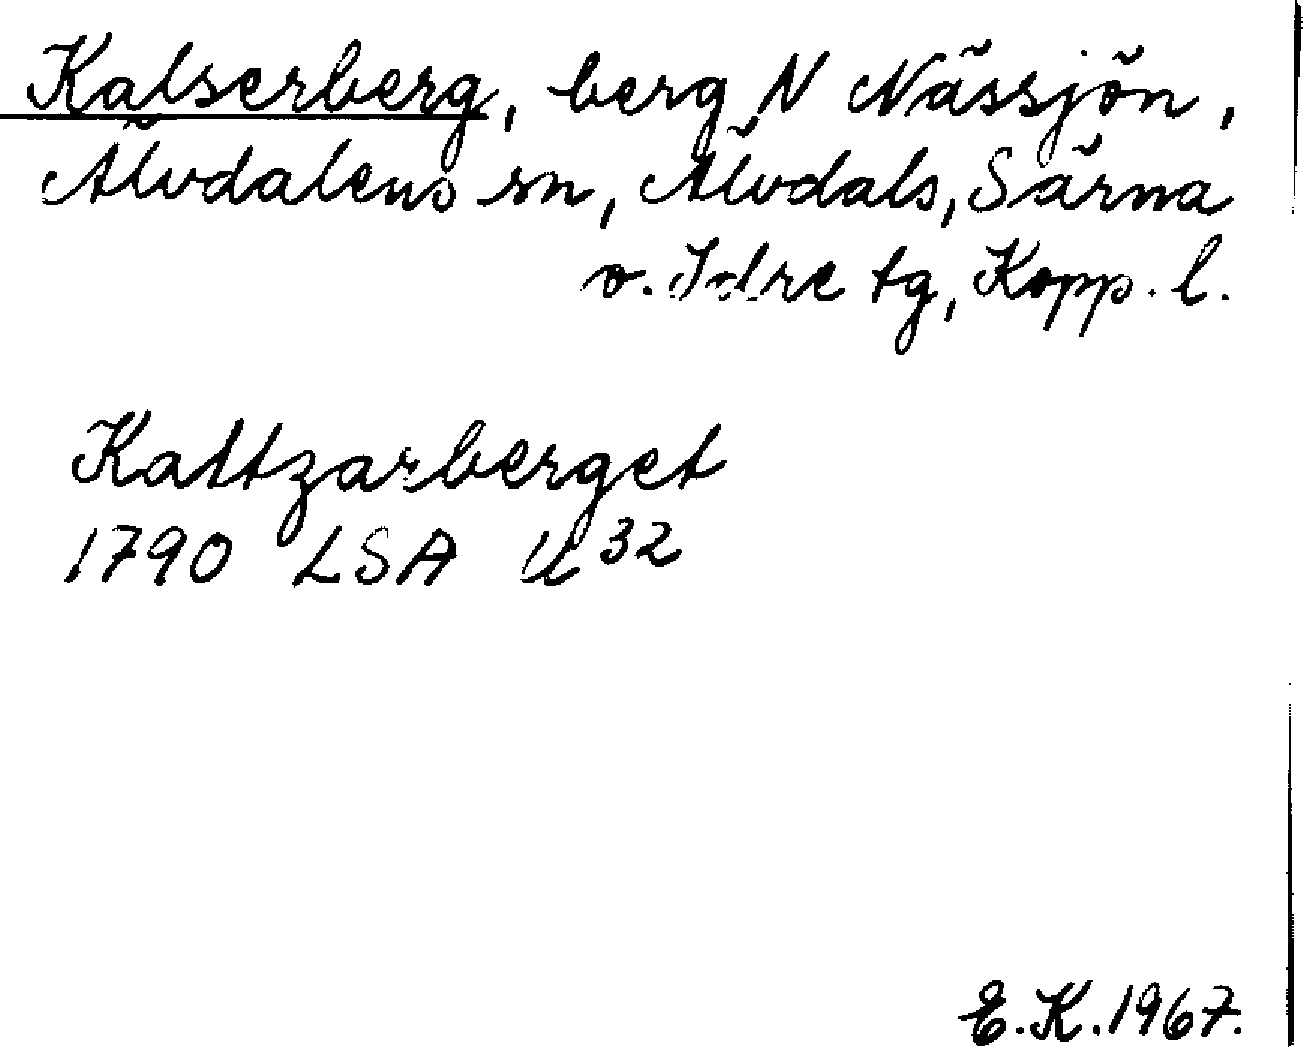 Kalserberg, berg N Nässjön,
Älvdalens sn, Älvdals, Särna
o. Idre tg, Kopp. l.
Kaltzarberget
1790 LSA U 32
E.K.1967.